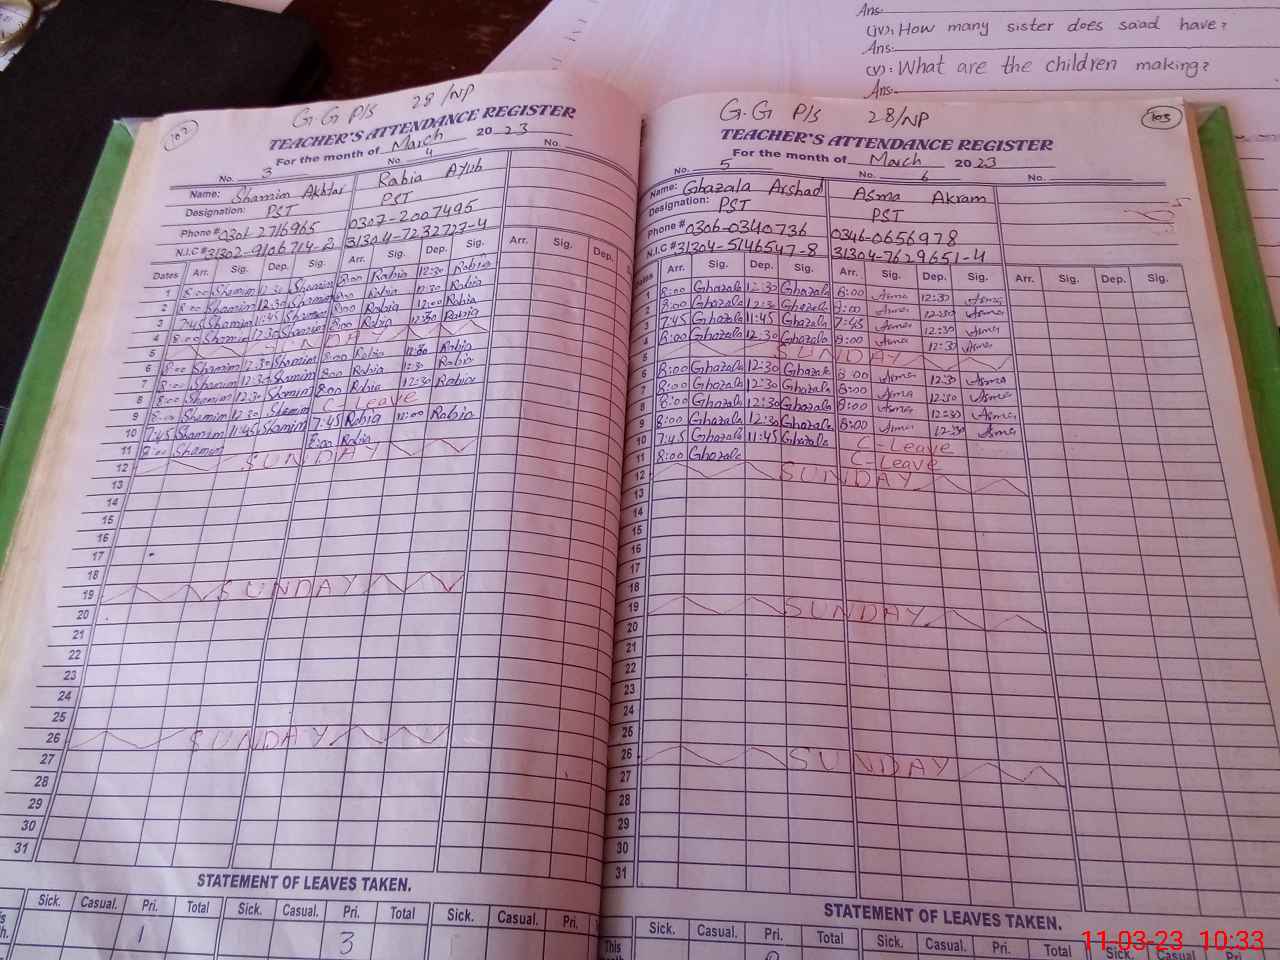 Ans.
(iv): How many sister does saad have?
Ans:
(v): What are the children making?
Ans:
G.G P/s 28/NP
102
TEACHER'S ATTENDANCE REGISTER
For the month of March 2023
No. 3 No. 4 No.
Name: Shamim Akhtar Rabia Ayub
Designation: PST PST
Phone # 0301 2716965 0307-2007495
N.I.C # 31302-9106714-2 31304-7232723-4
Dates Arr. Sig. Dep. Sig. Arr. Sig. Dep. Sig. Arr. Sig. Dep.
1 8:00 Shamim 12:30 Shamim 8:00 Rabia 12:30 Rabia
2 8:00 Shamim 12:30 Shamim 8:00 Rabia 12:30 Rabia
3 7:45 Shamim 11:45 Shamim 8:00 Rabia 12:00 Rabia
4 8:00 Shamim 12:30 Shamim 8:00 Rabia 12:30 Rabia
5 SUNDAY
6 8:00 Shamim 12:30 Shamim 8:00 Rabia 12:30 Rabia
7 8:00 Shamim 12:30 Shamim 8:00 Rabia 12:30 Rabia
8 8:00 Shamim 12:30 Shamim 8:00 Rabia 12:30 Rabia
9 8:00 Shamim 12:30 Shamim C-Leave
10 7:45 Shamim 11:45 Shamim 7:45 Rabia 12:00 Rabia
11 8:00 Shamim 8:00 Rabia
12 SUNDAY
13
14
15
16
17
18
19 SUNDAY
20
21
22
23
24
25
26 SUNDAY
27
28
29
30
31
STATEMENT OF LEAVES TAKEN.
Sick. Casual. Pri. Total Sick. Casual. Pri. Total Sick. Casual. Pri.
1 3
G.G P/s 28/NP
103
TEACHER'S ATTENDANCE REGISTER
For the month of March 2023
No. 5 No. 6 No.
Name: Ghazala Arshad Asma Akram
Designation: PST PST
Phone # 0306-0340736 0346-0656978
N.I.C # 31304-5146547-8 31304-7629651-4
Arr. Sig. Dep. Sig. Arr. Sig. Dep. Sig. Arr. Sig. Dep. Sig.
1 8:00 Ghazala 12:30 Ghazala 8:00 Asma 12:30 Asma
2 8:00 Ghazala 12:30 Ghazala 8:00 Asma 12:30 Asma
3 7:45 Ghazala 11:45 Ghazala 7:45 Asma 12:30 Asma
4 8:00 Ghazala 12:30 Ghazala 8:00 Asma 12:30 Asma
5 SUNDAY
6 8:00 Ghazala 12:30 Ghazala 8:00 Asma 12:30 Asma
7 8:00 Ghazala 12:30 Ghazala 8:00 Asma 12:30 Asma
8 8:00 Ghazala 12:30 Ghazala 8:00 Asma 12:30 Asma
9 8:00 Ghazala 12:30 Ghazala 8:00 Asma 12:30 Asma
10 7:45 Ghazala 11:45 Ghazala C-Leave
11 8:00 Ghazala C-Leave
12 SUNDAY
13
14
15
16
17
18
19 SUNDAY
20
21
22
23
24
25
26 SUNDAY
27
28
29
30
31
STATEMENT OF LEAVES TAKEN.
Sick. Casual. Pri. Total Sick. Casual. Pri. Total Sick. Casual.
This
11-03-23 10:33